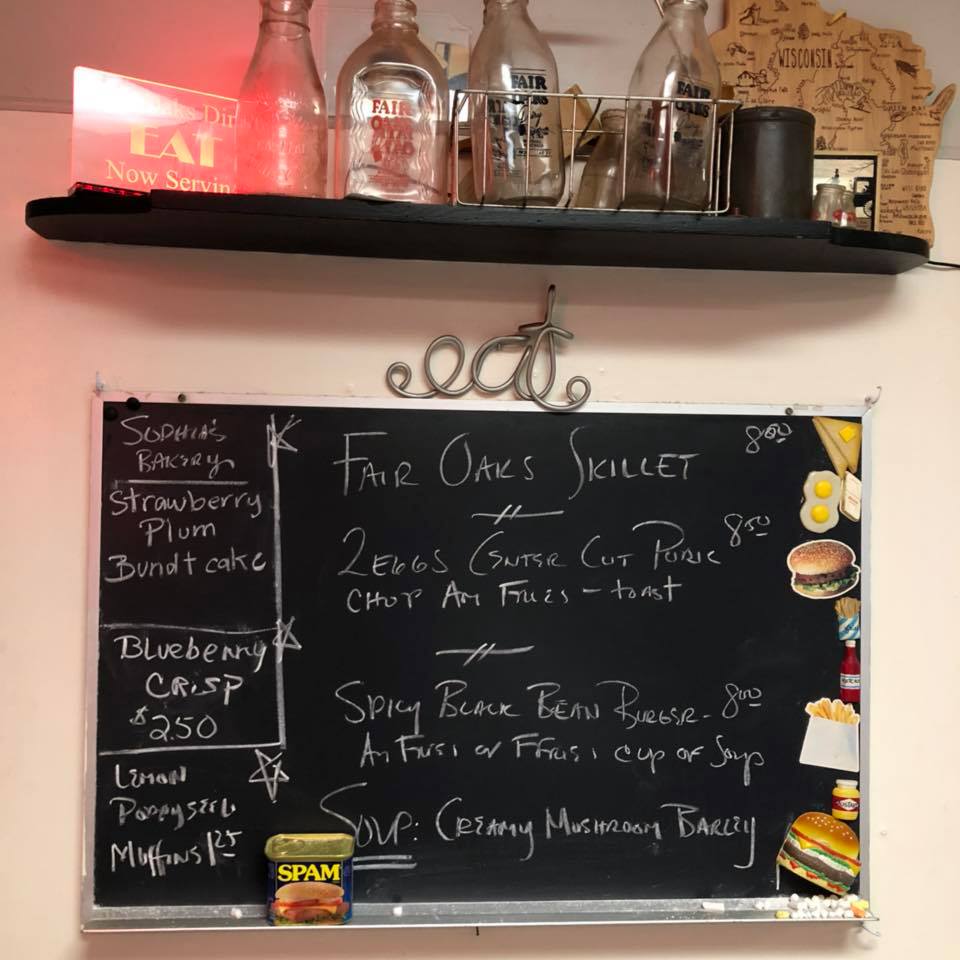 EAT
Now Servin
FAIR
OAKS
FAIR
OAKS
FAIR
OAKS
WISCONSIN
eat
SOPHIA'S
BAKERY
Strawberry
Plum
Bundt cake
BLueberry
CRISP
$2.50
LEMON
POPPYSEED
MuffINS 1.25
FAIR OAKS SKILLET 8.00
2 EGGS CENTER CUT PORK 8.50
CHOP AM FRIES - toAst
SPICY BLACK BEAN BURGER - 8.00
AM FRIES or F FRIES, cup of Soup
SOUP: CREAMY MUSHROOM BARLEY
SPAM